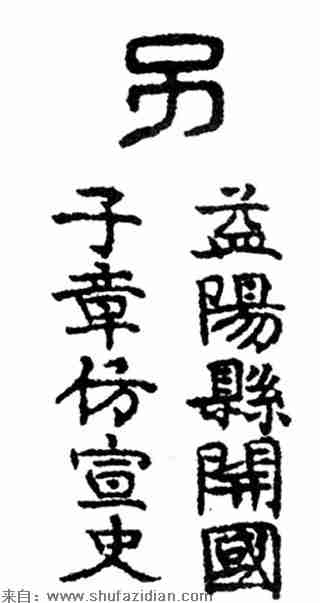 益陽縣開國
子章仿宣史
来自：www.shufazidian.com